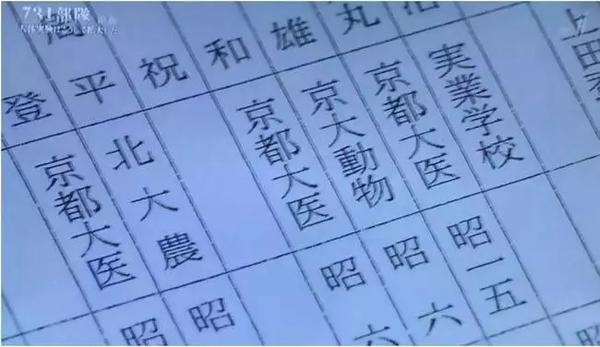 731部隊
上田
実業学校
丸
京都大医
昭一五
雄
京大動物
昭六
和
京都大医
昭六
祝
平
北大農
昭
登
京都大医
昭